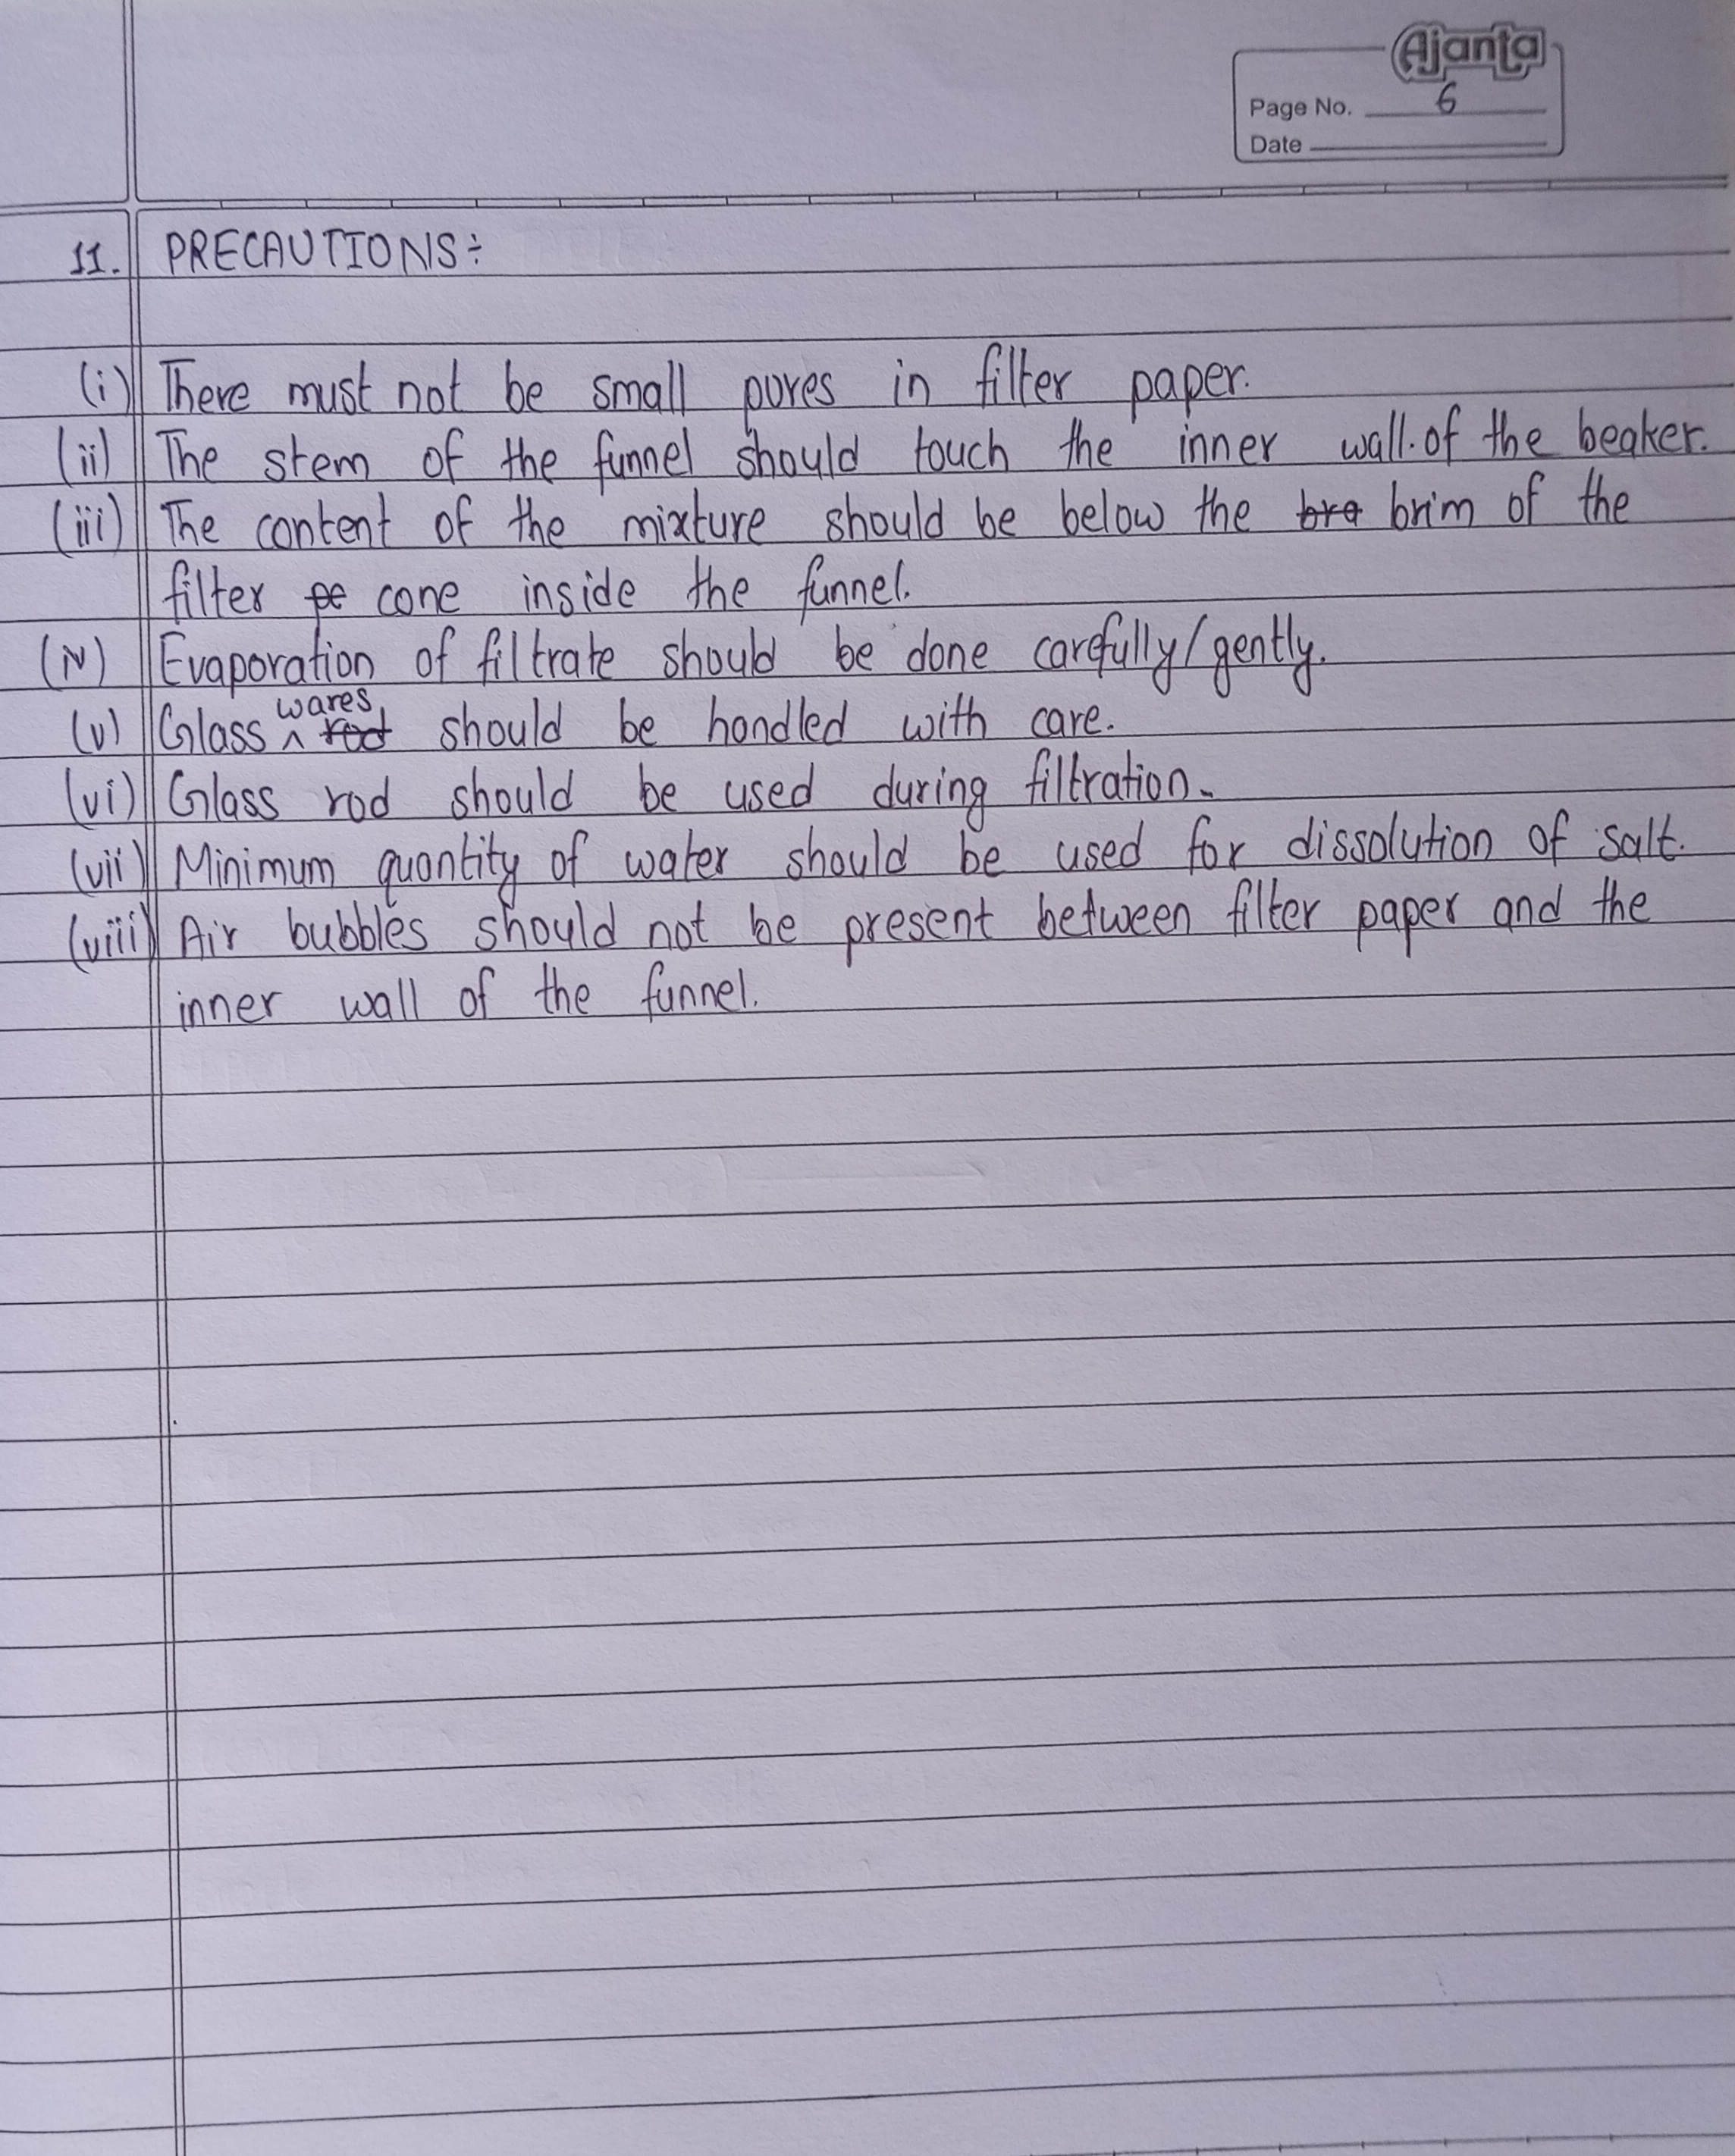 Ajanta
Page No. 6
Date
11. PRECAUTIONS:
(i) There must not be small pores in filter paper.
(ii) The stem of the funnel should touch the inner wall of the beaker.
(iii) The content of the mixture should be below the bra brim of the
filter pe cone inside the funnel.
(iv) Evaporation of filtrate should be done carefully/gently.
wares
(v) Glass ^ rod should be handled with care.
(vi) Glass rod should be used during filtration.
(vii) Minimum quantity of water should be used for dissolution of salt.
(viii) Air bubbles should not be present between filter paper and the
inner wall of the funnel.